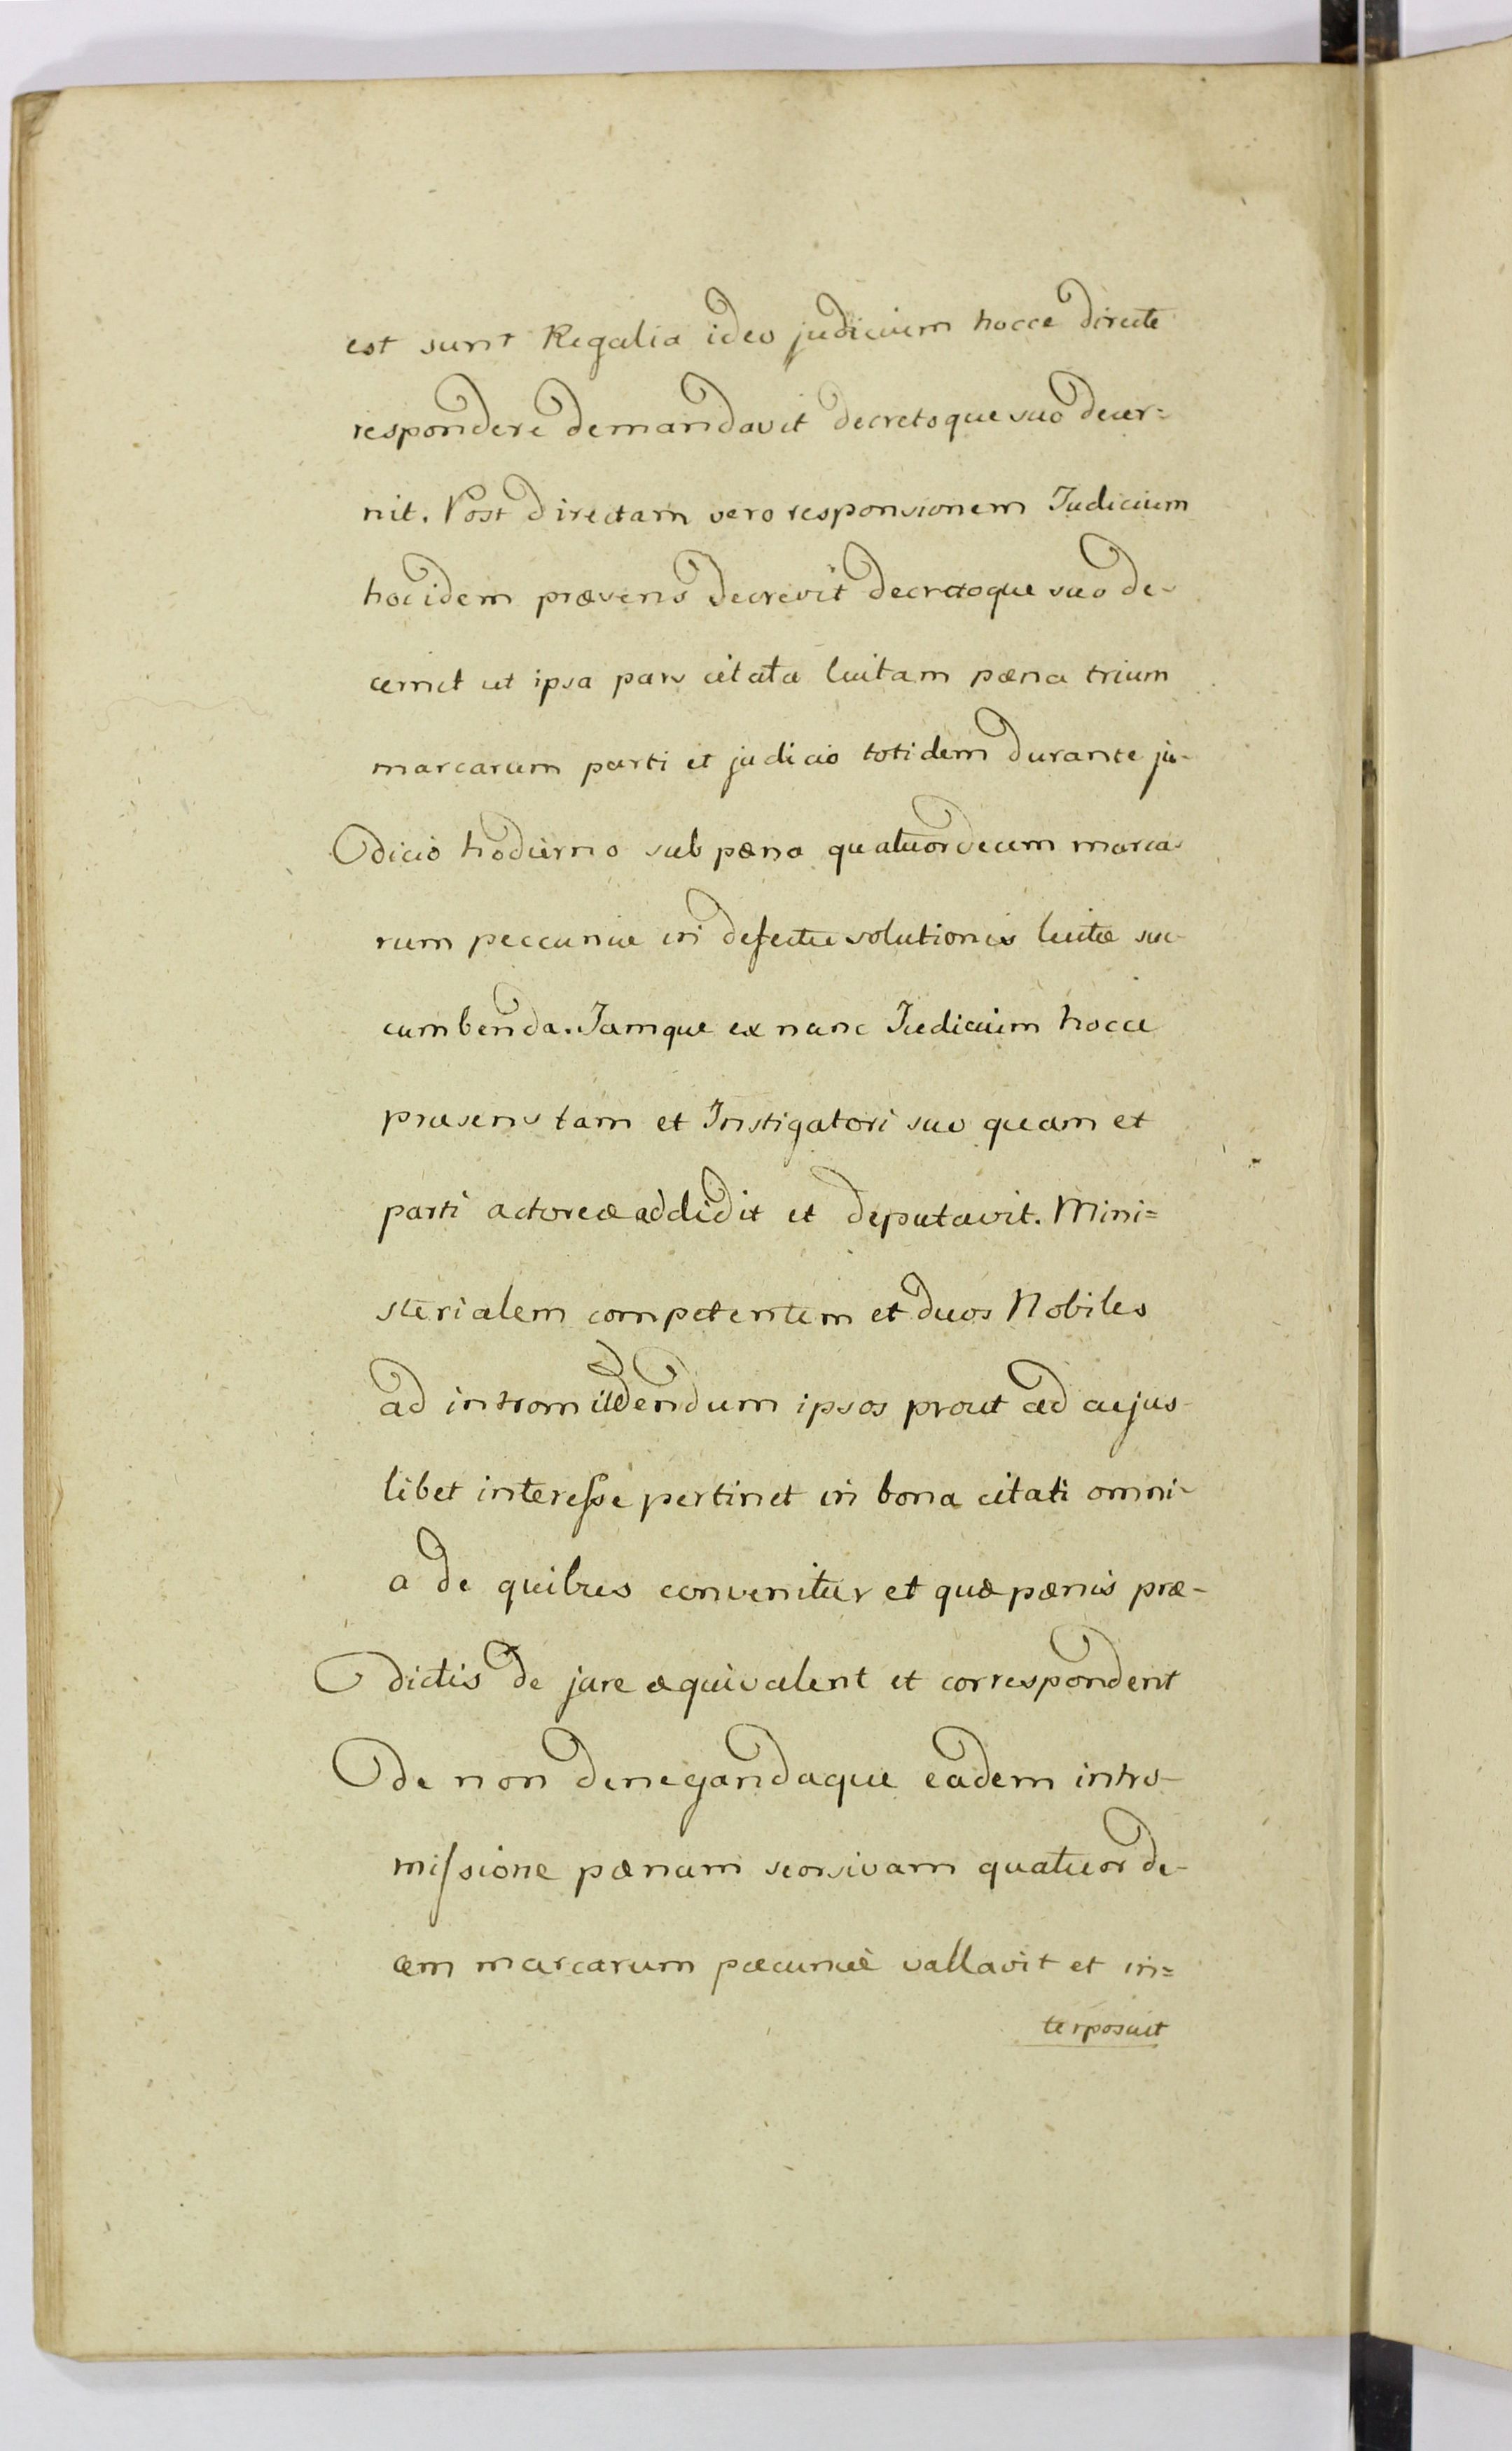 est sunt Regalia ideo judicium hocce directe
respondere demandavit decretoque suo decer=
nit. Post directam vero responsionem Judicium
hoc idem præsens decrevit decretoque suo de-
cernit ut ipsa pars citata luitam pæna trium
marcarum parti et judicio totidem durante ju-
dicio hodierno sub pæna quatuordecem marca-
rum peccuniæ in defectu solutionis luitæ suc-
cumbenda. Jamque ex nunc Judicium hocce
præsens tam et Instigatori suo quam et
parti actoreæ addidit et deputavit. Mini=
sterialem competentem et duos Nobiles
ad intromittendum ipsos prout ad cujus-
libet interesse pertinet in bona citati omni-
a de quibus convenitur et quæ pænis præ-
dictis de jure æquivalent et correspondent
de non denegandaque eadem intro-
missione pænam seorsivam quatuor de-
cem marcarum pæcuniæ vallavit et in=
terposuit